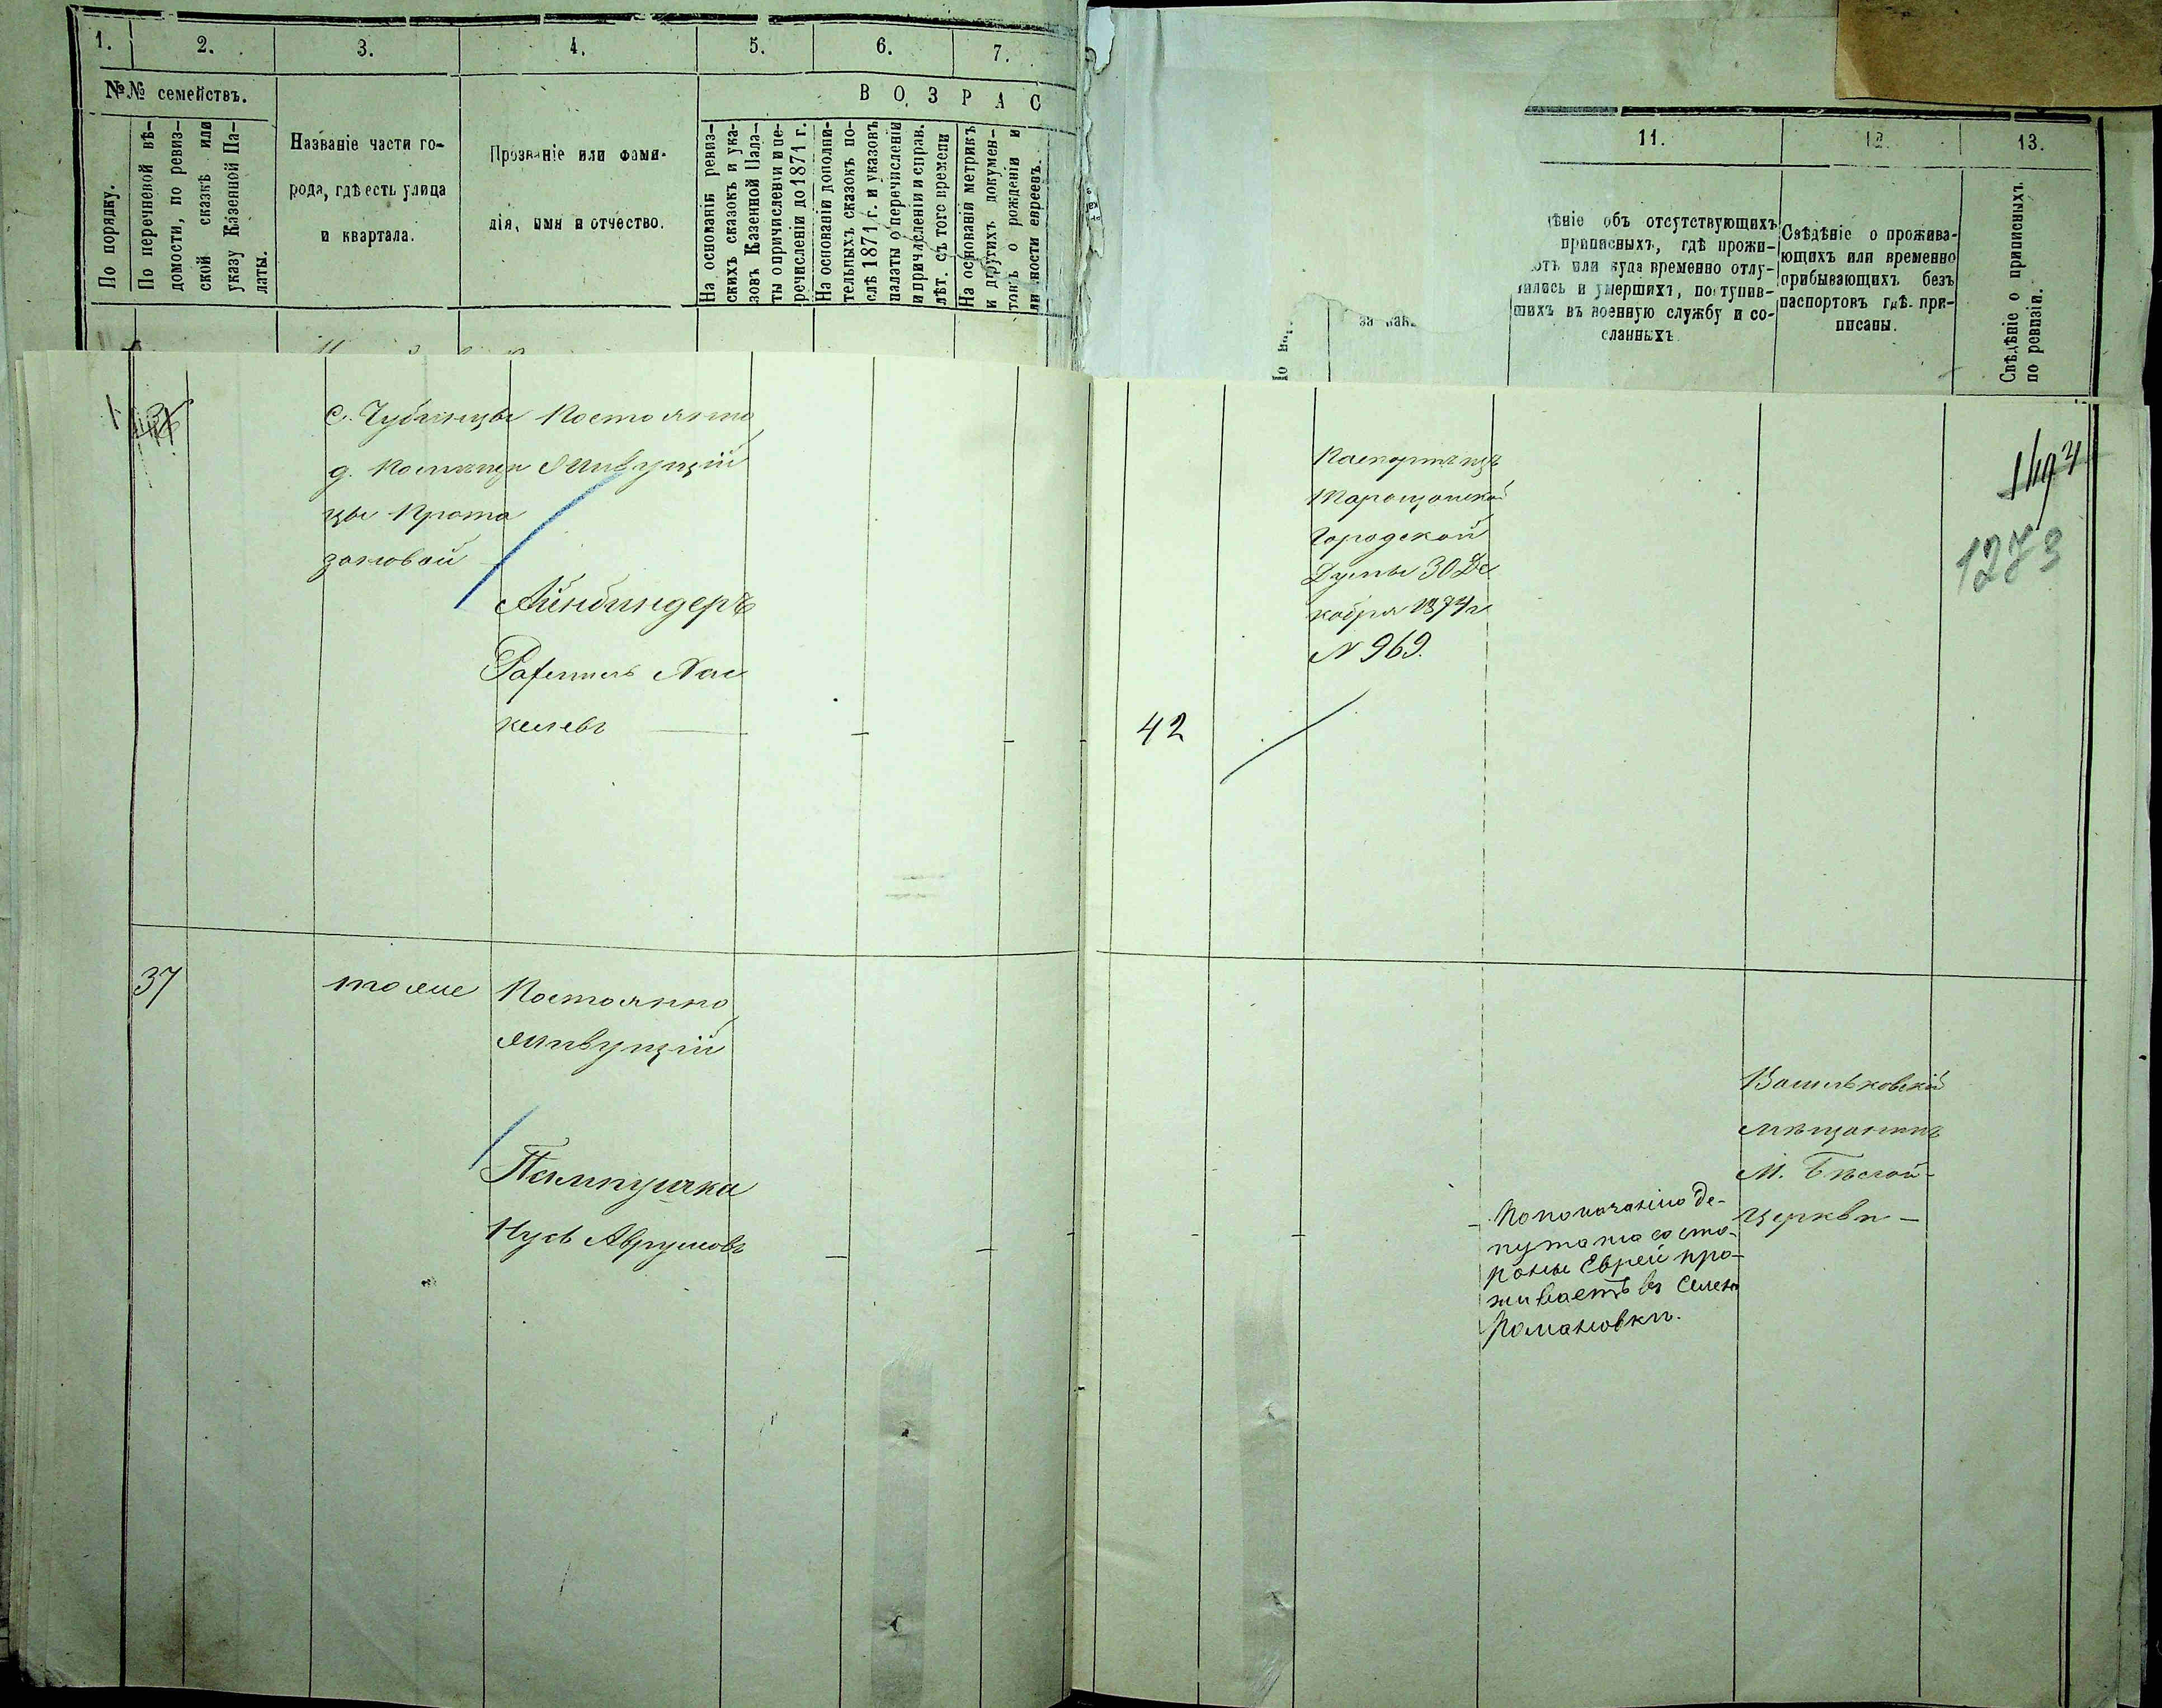 1.
2.
3.
4.
5.
6.
7.
№№ семействъ.
В О З Р А С
По порядку.
По перечневой вѣ-
домости, по ревиз-
ской сказкѣ или
указу Казенной Па-
латы.
Названіе части го-
рода, гдѣ есть улица
и квартала.
Прозваніе или фами-
лія, имя и отчество.
На основаніи ревиз-
скихъ сказокъ и ука-
зовъ Казенной Пала-
ты о причисленіи и пе-
речисленіи до 1871 г.
На основаніи дополни-
тельныхъ сказокъ по-
слѣ 1871 г. и указовъ
палаты о перечисленіи
и причисленіи и справ.
лѣт. съ того времени
На основаніи метрикъ
и другихъ докумен-
товъ о рожденіи и
личности евреевъ.
11.
12.
13.
дѣніе объ отсутствующихъ
приписныхъ, гдѣ прожи-
ютъ или куда временно отлу-
чились и умершихъ, поступив-
шихъ въ военную службу и со-
сланныхъ.
Свѣдѣніе о прожива-
ющихъ или временно
прибывающихъ безъ
паспортовъ гдѣ при-
писаны.
Свѣдѣніе о приписныхъ
по ревизіи.
с. Чубинцы
д. Помѣщи
цы Прота
зановой
Постоянно
Живущій
Айнбиндеръ
Рафаилъ Хас
келевъ
42
Паспортъ изъ
Таращанской
Городской
Думы 30 Де
кабря 1874 г
N 969.
1273
37
тоже
Постоянно
Живущій
Пампушка
Нусь Аврумовъ
По показанію де-
путата со сто-
роны Еврей про-
живаетъ въ Селѣ
Романовкѣ.
Васильковскій
мѣщанинъ
М. Бѣлой-
Церкви